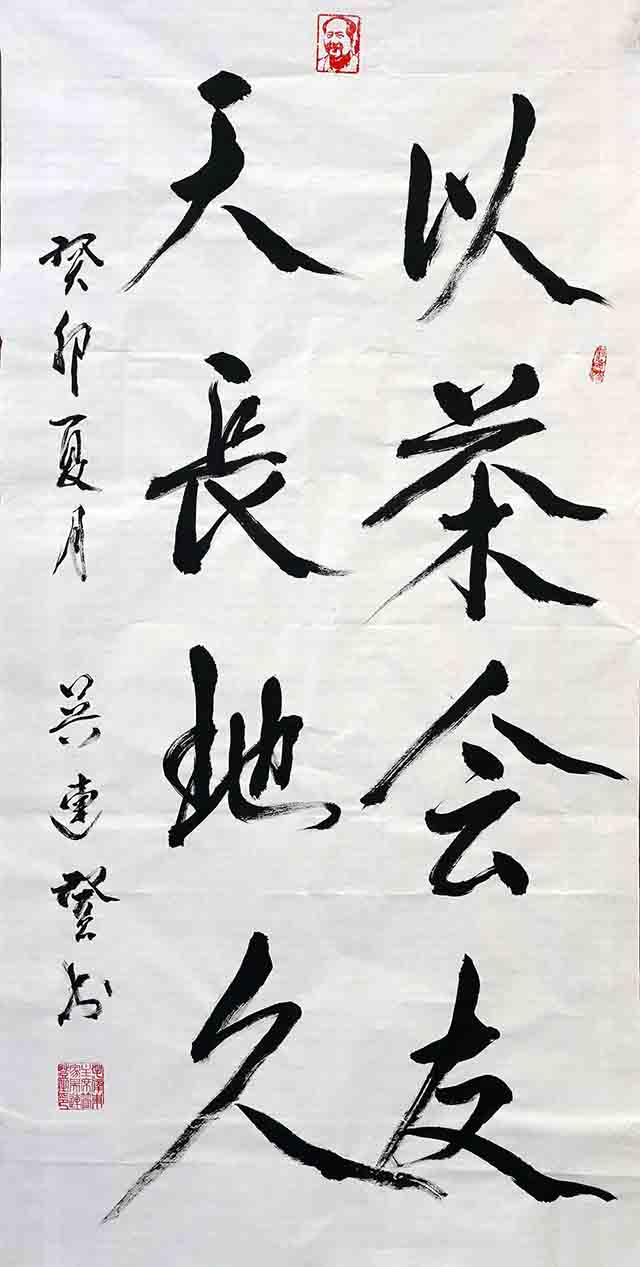 以茶会友
天長地久
癸卯夏月 吴連登书